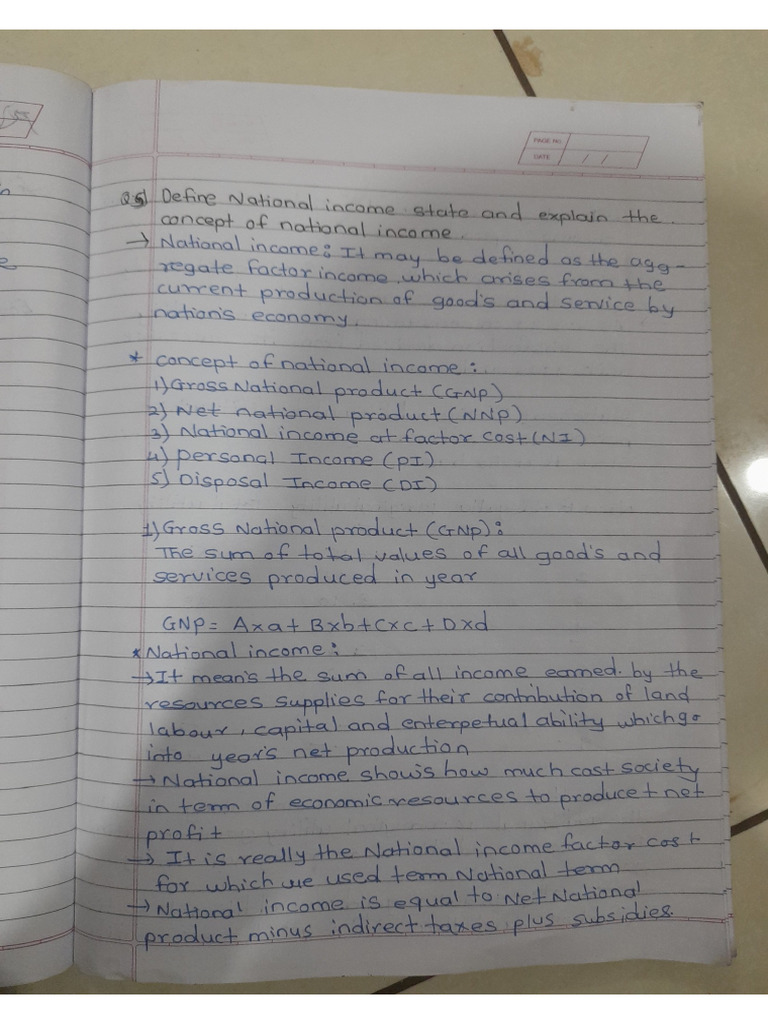 PAGE No.
DATE / /
Q5) Define National income state and explain the
concept of national income.
→ National income: It may be defined as the agg-
regate factor income, which arises from the
current production of good's and service by
nation's economy.
* concept of national income:
1) Gross National product (GNP)
2) Net national product (NNP)
3) National income at factor cost (NI)
4) personal Income (PI)
5) Disposal Income (DI)
1) Gross National product (GNP):
The sum of total values of all good's and
services produced in year
GNP = Axa + Bxb + Cxc + Dxd
* National income:
→ It mean's the sum of all income earned by the
resources supplies for their contribution of land
labour, capital and enterpetual ability which go
into year's net production
→ National income show's how much cost society
in term of economic resources to produce t net
profit
→ It is really the National income factor cost
for which we used term National term
→ National income is equal to Net National
product minus indirect taxes plus subsidies.